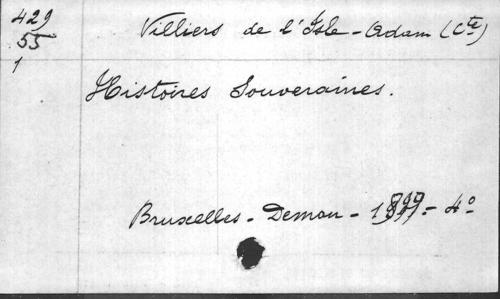 429
55
1
Villiers de l'Isle-Adam (Cte)
Histoires Souveraines.
Bruxelles - Deman - 1899 - 4o